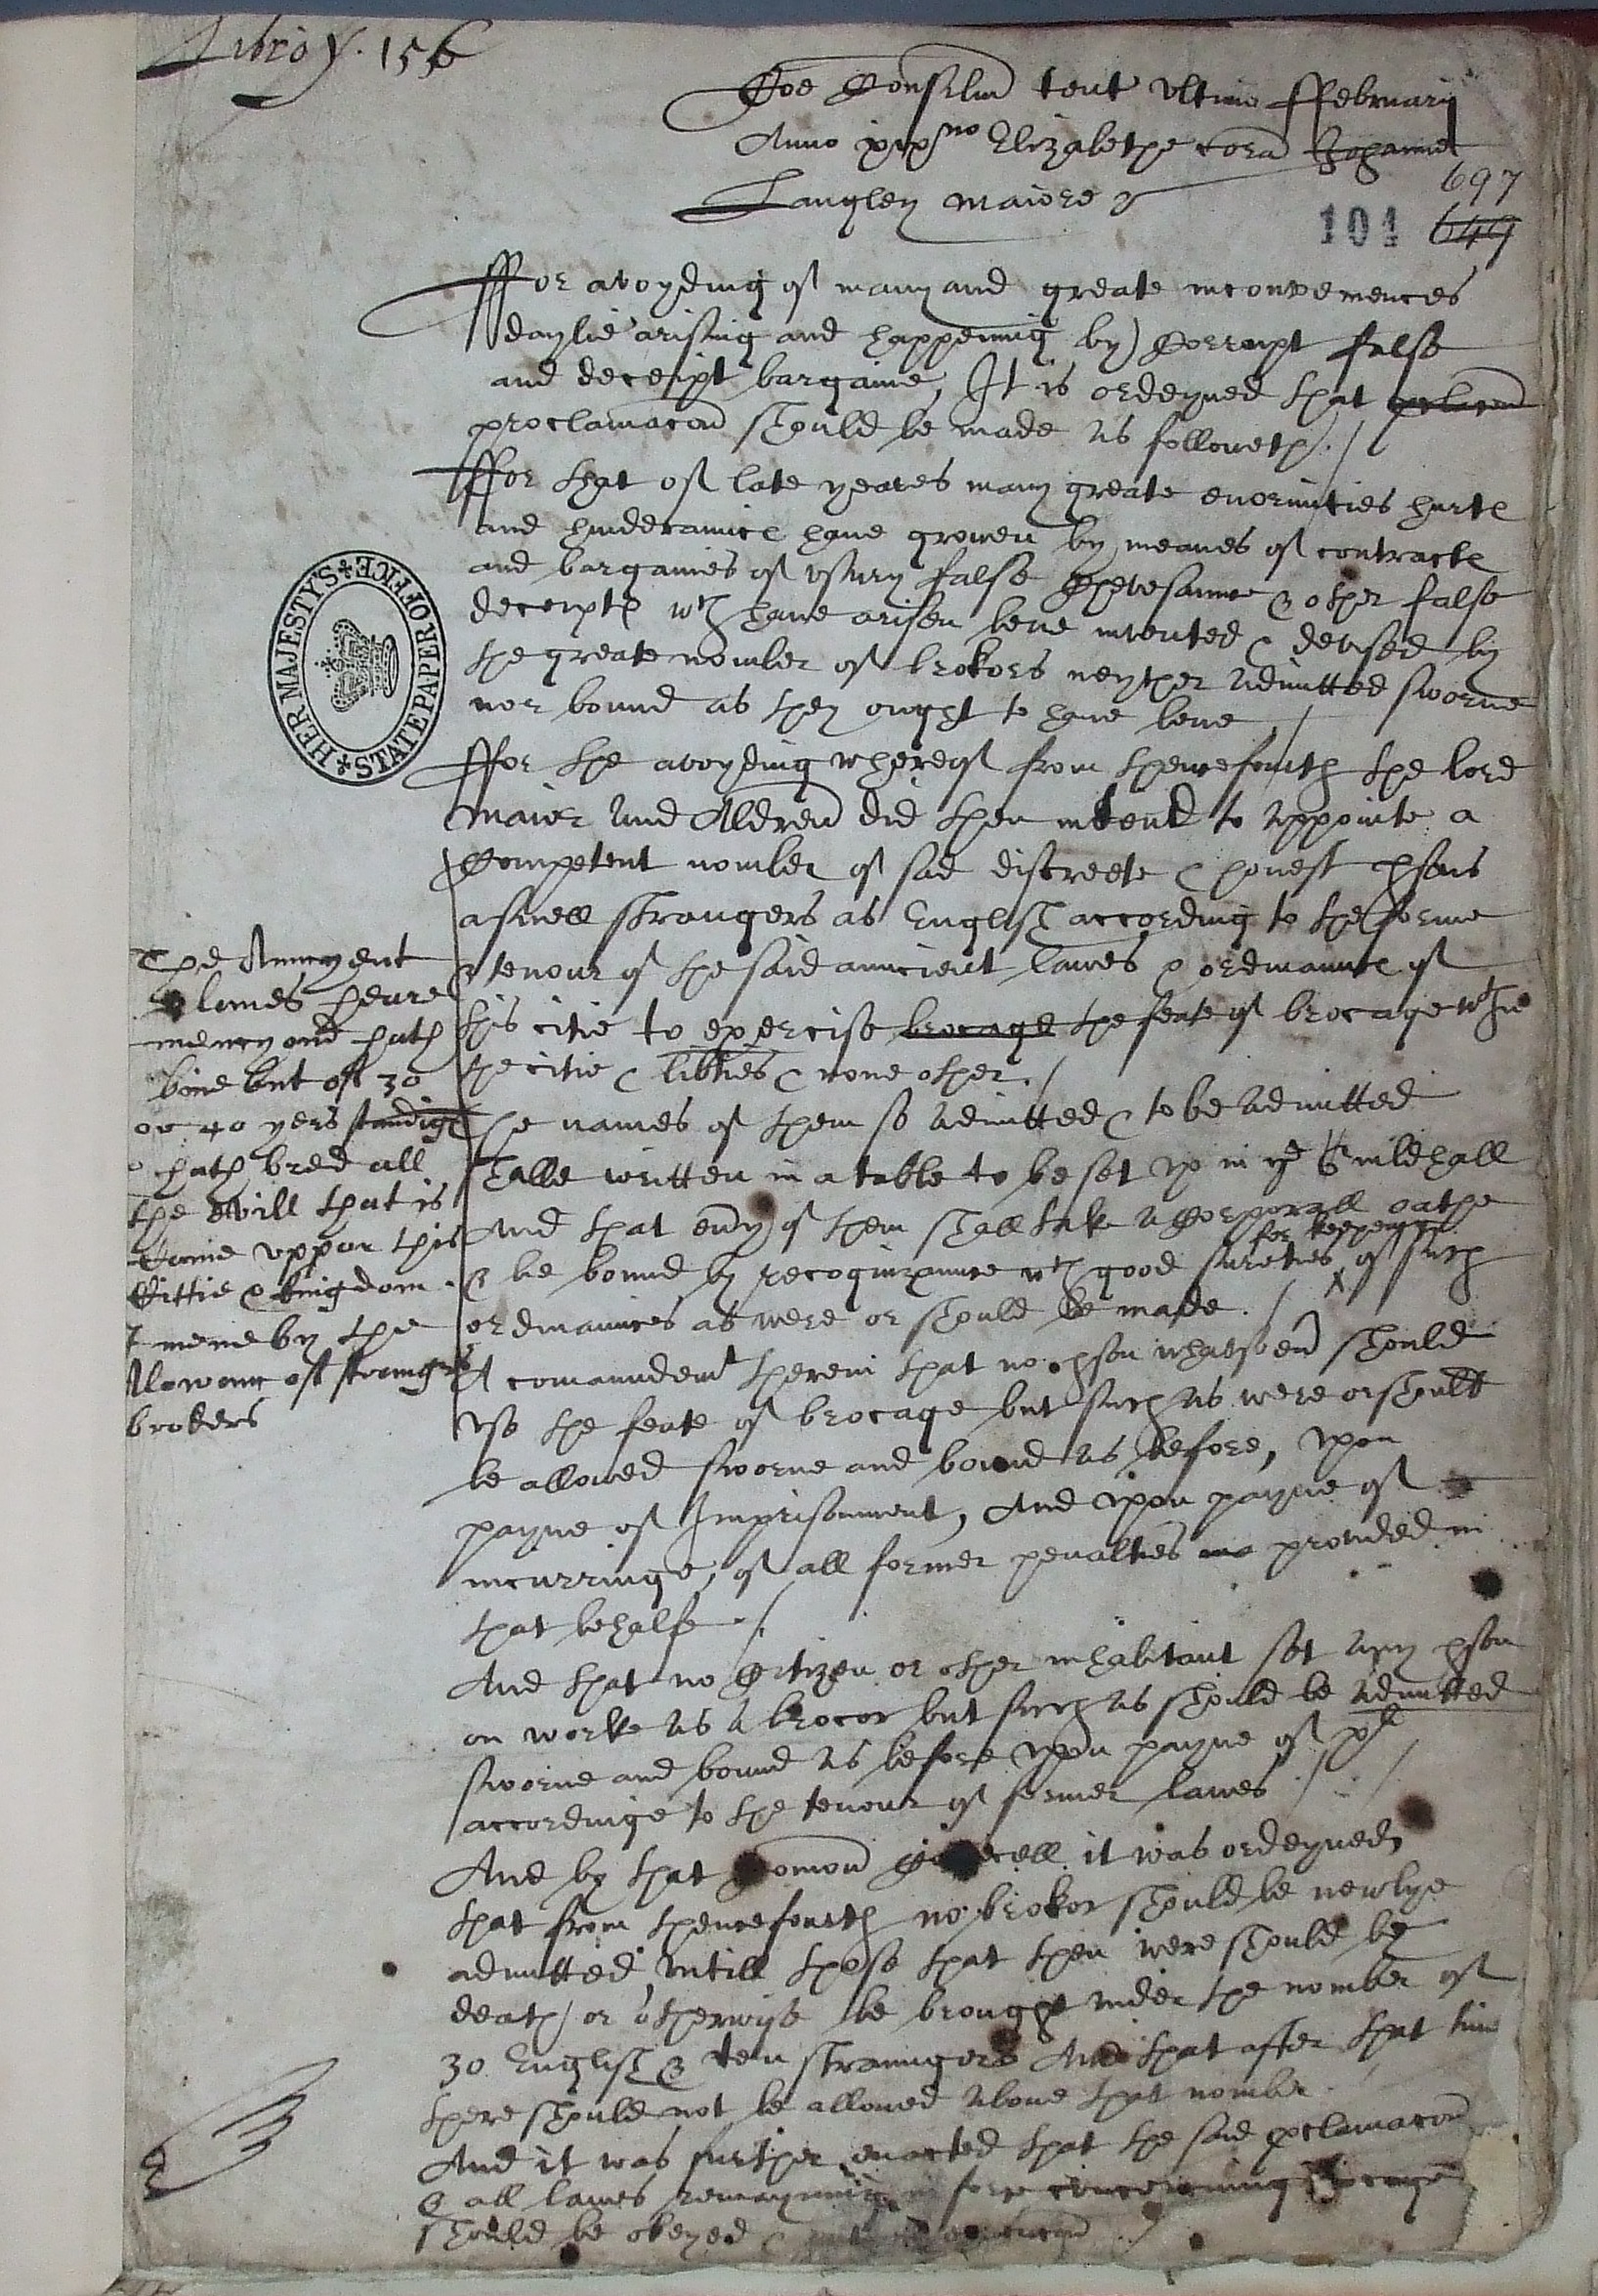 Libro y. 156
Coe Consiliu tent vltimo ffebruarij
Anno xixno Elizabethe cora Johanne
Langley maiore
697
101 649
ffor avoyding of many and greate inconveniences
daylie arising and happening by Corrupt false
and deceipt bargaine, It is ordeyned that
proclamacon should be made as followeth./
ffor that of late yeares many greate enormities hurte
and hinderaunce have growen by meanes of contracte
and bargaines of vsury false chevesaunce & other false
deceipte wch have arisen bene invented & devised by
the greate nomber of brokors neyther admitted sworne
nor bound as they ought to have bene /
HER MAJESTY'S STATE PAPER OFFICE
ffor the avoyding whereof from thenceforth the lord
Maior and Aldren did then intend to appointe a
Competent nomber of sad discreete & honest psons
aswell strangers as English according to the forme
& tenour of the said auncient lawes & ordinaunce of
this citie to exercise brocage the feate of brocage wthin
the citie & libties & none other./
The names of them so admitted & to be admitted
shalbe written in a table to be set vp in ye Guildhall
And that eury of them shall take a Corporall oathe
& be bound by recognizaunce wth good sureties for keepeing of such
ordinaunces as were or should be made. /
A comaundemt therein that no pson whatsoeu should
vse the feate of brocage but such as were or should
be allowed sworne and bound as before, vpon
payne of Imprisonment, And vpon payne of
incurringe, of all former penalties provided in
that behalfe ./
And that no Citizen or other inhabitant set any pson
on worke as a brocor but such as should be admitted
sworne and bound as before vpon payne of xli
accordinge to the tenour of former lawes /
And by that Comon Councell it was ordeyned,
that from thenceforth no brokor should be newlye
admitted vntill those that then were should by
death or otherwise be brought vnder the nomber of
30 English & ten straungers And that after that time
there should not be allowed above that nomber.
And it was further enacted that the said pclamacon
& all lawes remayning in force concerning brocage
should be obeyed &
The Anncyent
lawes heare
mencyond hath
bine but of 30
or 40 yers standige
& hath bred all
the Evill that is
Come vppon this
Cittie & kingdom
I mene by the
Alowenc of strangrs
brokers